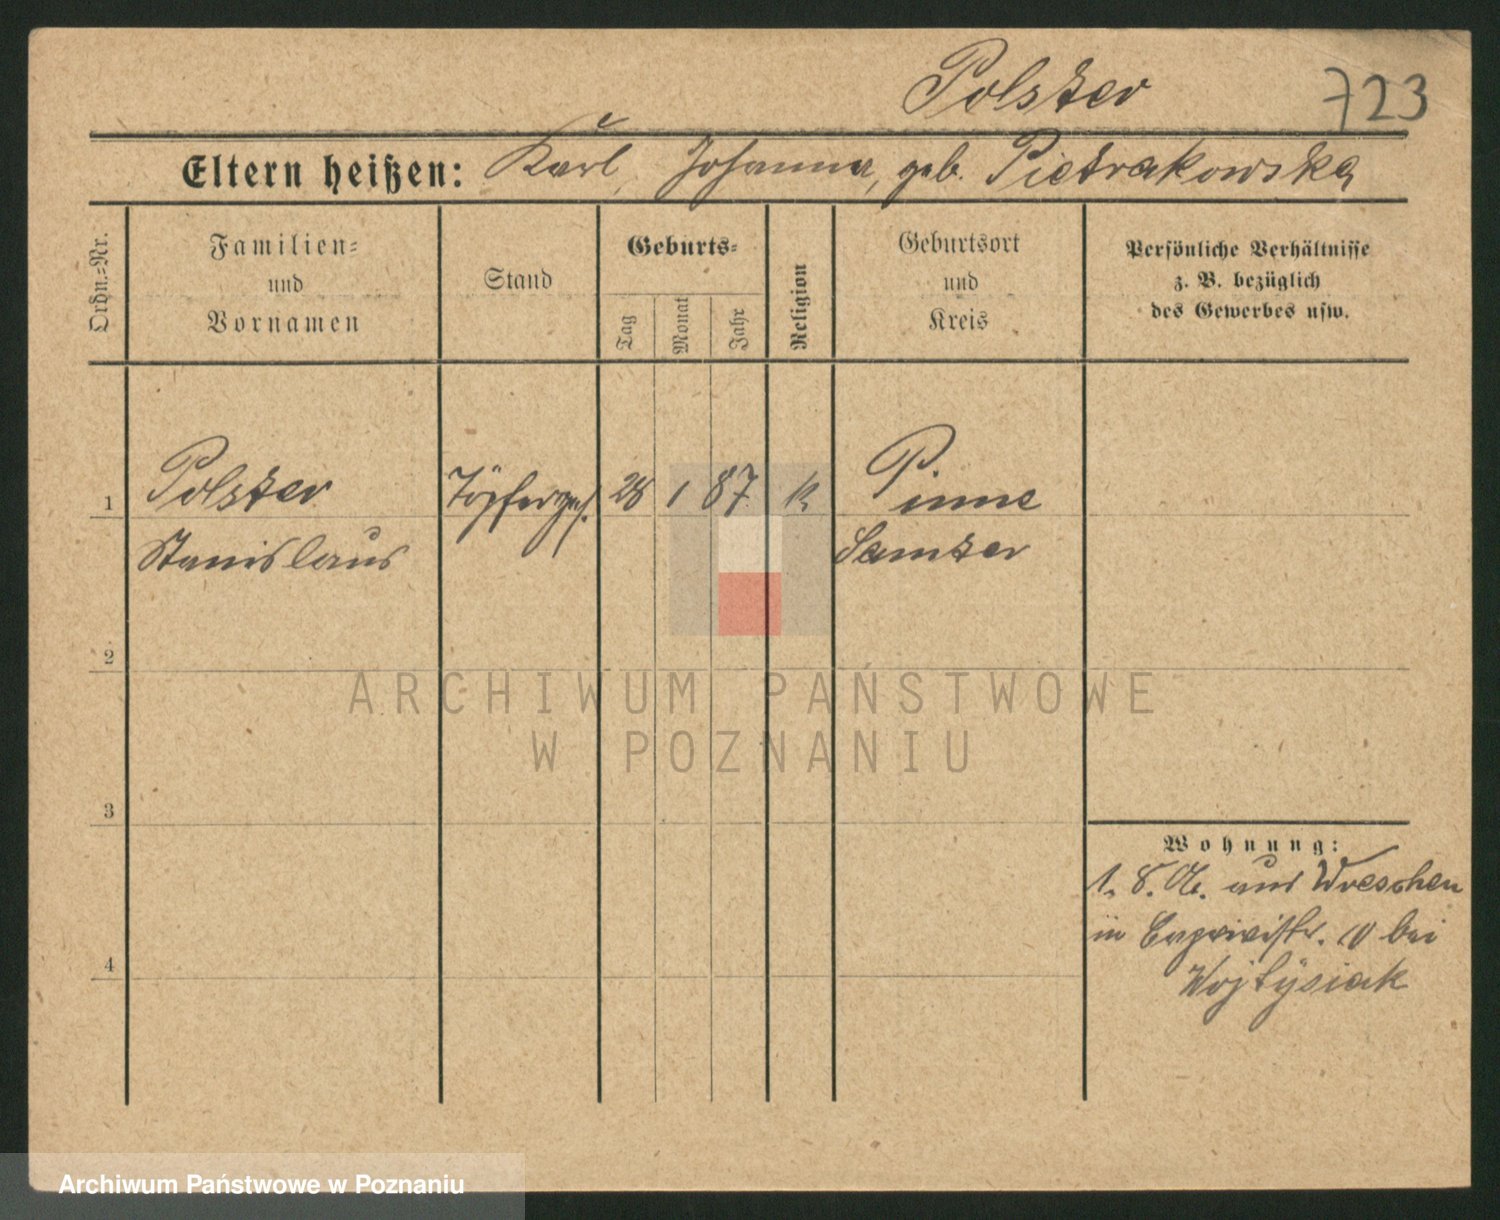 Polster 723
Eltern heißen: Karl, Johanna, geb. Pietrakowska
Ordn.=Nr.
Familien=
und
Vornamen
Stand
Geburts=
Tag
Monat
Jahr
Religion
Geburtsort
und
Kreis
Persönliche Verhältnisse
z. B. bezüglich
des Gewerbes usw.
1 Polster Töpferges. 28 1 87 k. Pinne
Stanislaus Samter
2
ARCHIWUM PAŃSTWOWE
W POZNANIU
3
Wohnung:
1. 8. 06. aus Wreschen
in bei
Wojtysiak
4
Archiwum Państwowe w Poznaniu